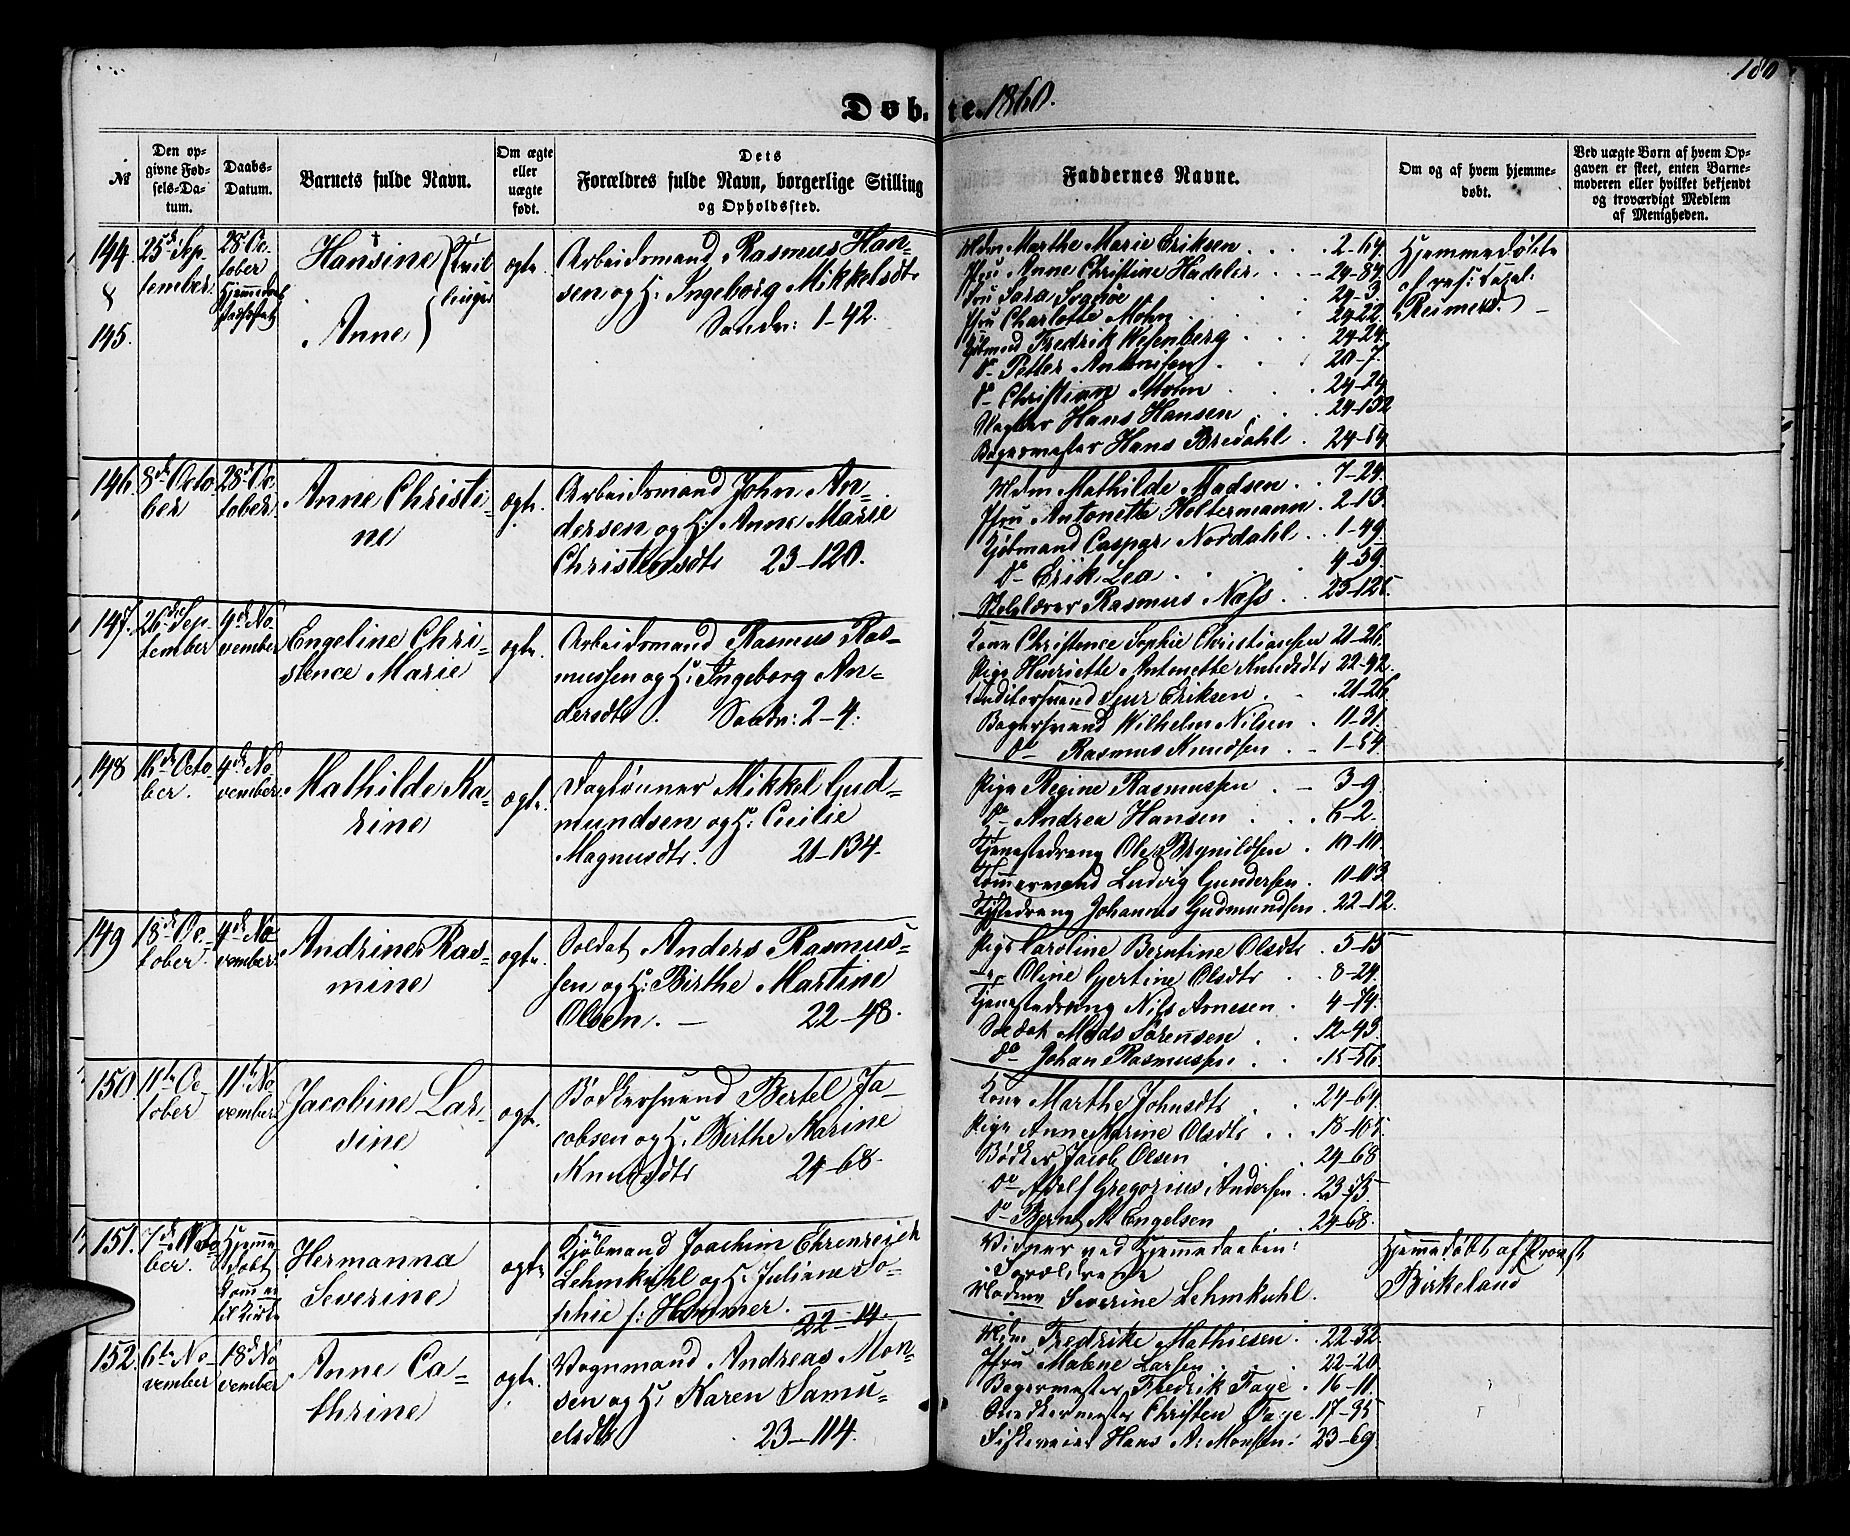 180
Døbte. 1860.
№
Den opgivne Fødsels-Datum.
Daabs-Datum.
Barnets fulde Navn.
Om ægte eller uægte født.
Dets Forældres fulde Navn, borgerlige Stilling og Opholdssted.
Faddernes Navne.
Om og af hvem hjemmedøbt.
Ved uægte Børn af hvem Opgaven er skeet, enten Barnemoderen eller hvilket bekjendt og troværdigt Medlem af Menigheden.
144 & 145.
25de September.
28 October
Hansine
Anne
Tvillinger
ægte.
Arbeidsmand Rasmus Hansen og H: Ingeborg Mikkelsdt
Sandv: 1-42.
Mdm Marthe Marie Eriksen 2-64.
Fru Anne Christine Hadeler 24-84
Fru Sara 24-3
Fru Charlotte Mohn 24-22
Kjøbmand Fredrik Wesenberg 24-24.
Do Petter Antonisen 20-7.
Do Christian Mohn 24-24
Hans Hansen 24-132
Bagermester Hans Bredahl. 24-54
Hjemmedøbte af
146.
8de October
28de October.
Anne Christine
ægte.
Arbeidsmand John Andersen og H: Anne Marie
Christensdt 23-120.
Mdm Mathilde Madsen 7-24.
Fru Antonette Holtermann 2-13.
Kjøbmand Caspar Nordahl 1-49
Do Erik Lea 4-59
Skolelærer Rasmus Næss 23-126
147.
26de September
4de November
Engeline Christence Marie
ægte.
Arbeidsmand Rasmus Rasmussen og H: Ingeborg Andersdt.
Sandv: 2-4.
Kone Christence Sophie Christiansen 21-26.
Pige Henriette Antonette Knudsdt 22-92.
Conditorsvend Sjur Eriksen 21-26
Bagersvend Wilhelm Nilsen 11-31
Do Rasmus Knudsen 1-54
148
16de October.
4de November.
Mathilde Karine
ægte.
Mikkel Gudmundsen og H: Cicilie
Magnusdt. 21-134.
Pige Regine Rasmussen 3-9.
Do Andrea Hansen 6-2.
Tjenestedreng Ole Brynildsen 10-10.
Tømmermand Ludvig Gundersen. 11-103
Tjenestedreng Johannes Gudmundsen 22-12.
149
18de October.
4de November.
Andrine Rasmine
ægte.
Soldat Anders Rasmussen og H: Birthe Martine
Olsen. 22-48.
Pige Caroline Berntine Olsdt 5-15
Oline Gjertine Olsdt 8-24.
Tjenestedreng Nils Arnesen 4-74.
Soldat Mads Sørensen 12-93.
Do Johan Rasmussen 15-56.
150.
11te October
11te November
Jacobine Larsine
ægte.
Bødkersvend Bertel Jacobsen og H: Birthe Karine
Knudsdt 24-68.
Kone Marthe Johnsdt 24-64.
Pige Anne Marine Olsdt 18-105.
Bødker Jacob Olsen 24-68
Do Adolf Gregorius Andersen 23-73.
Do Bernt M. Engelsen 24-68.
151.
7de November.
Hjemmedøbt
Hermanna Severine
ægte
Kjøbmand Joachim Ehrenreich
Lehmkuhl og H: Juliane Sophie f: Hammer. 22-14.
Vidner ved Hjemmedaaben:
Forældrene
Madme Severine Lehmkuhl.
Hjemmedøbt af Provst
Birkeland
152.
6te November
18de November
Anne Cathrine
ægte.
Vognmand Andreas Monsen og H: Karen Samuelsdt
23-114.
Mdm Fredrike Mathiesen 22-32
Fru Malene Larsen 22-20
Bagermester Fredrik Faye 16-11.
Snedkermester Christen Faye 17-35
Hans A: Monsen. 23-69.